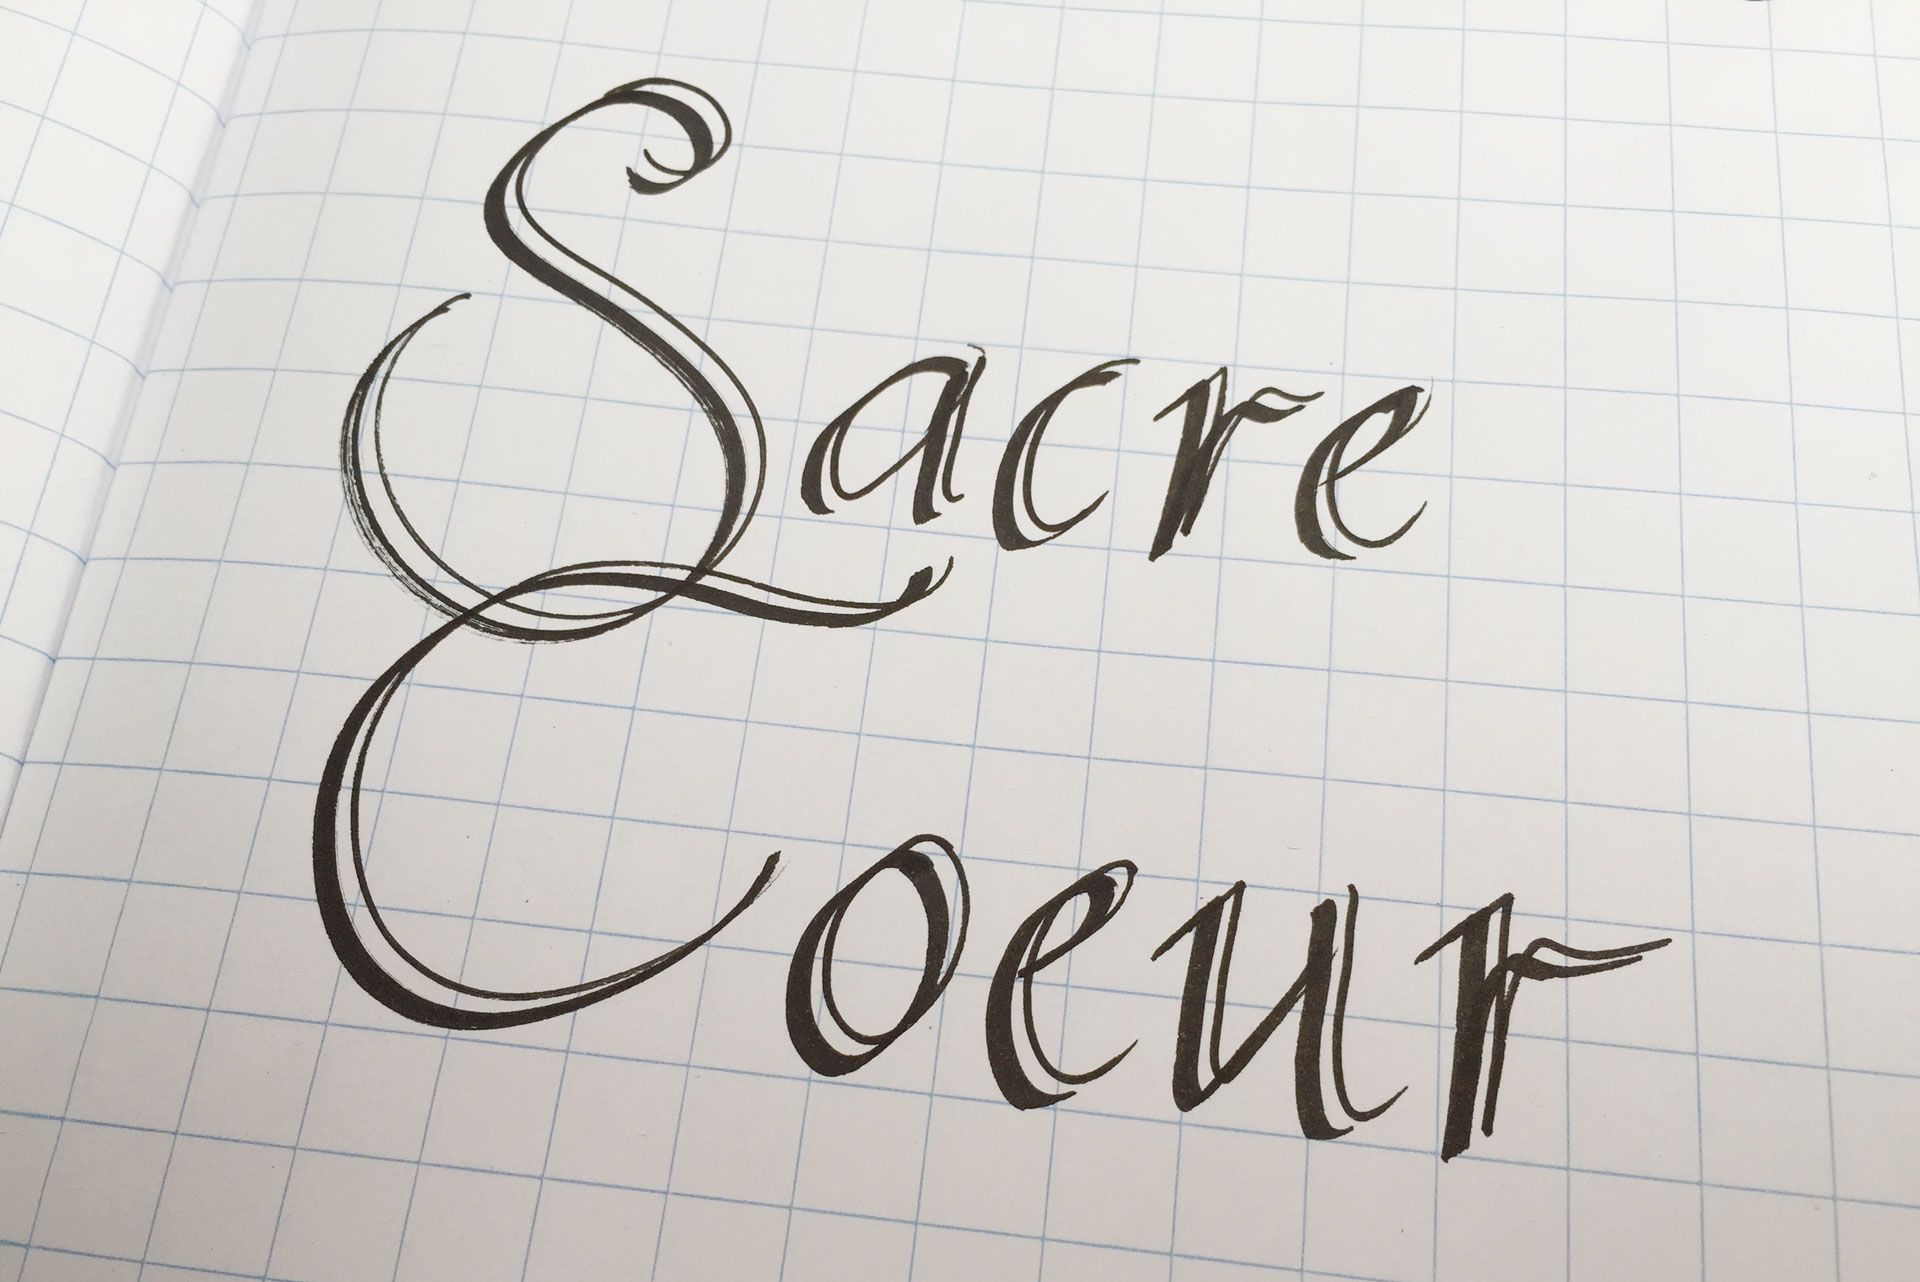 Sacre
Coeur